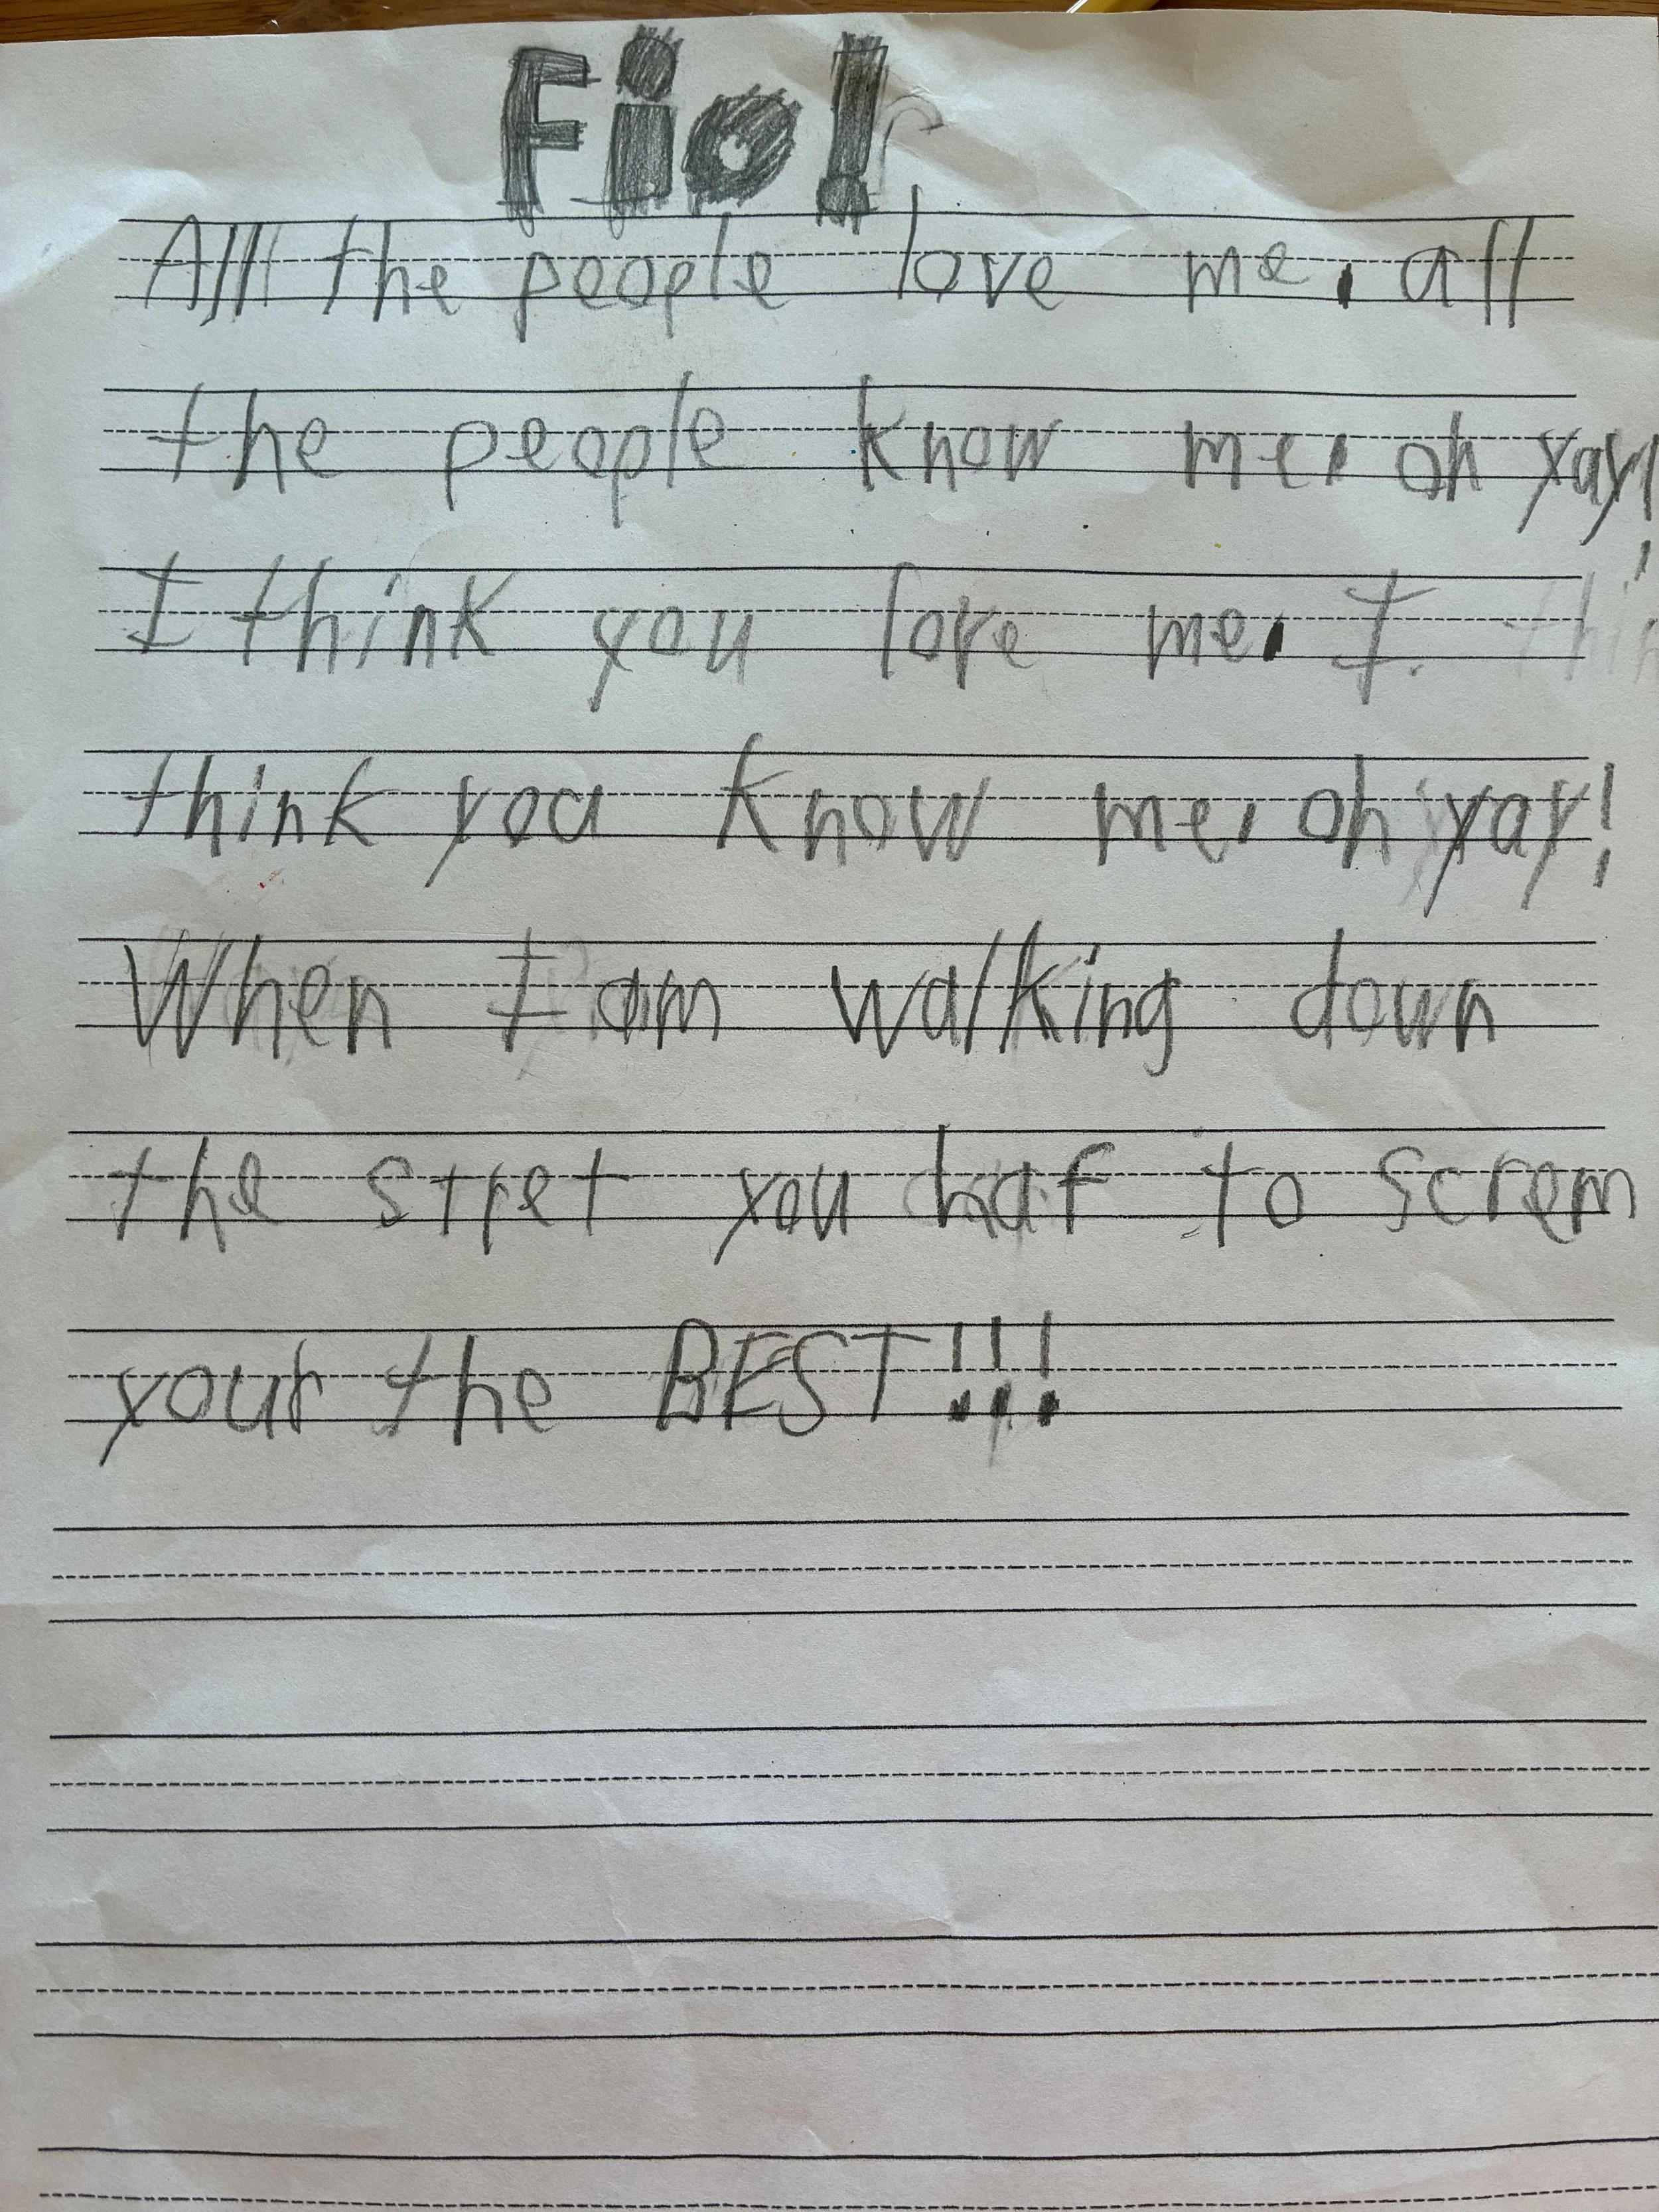 Fio!
All the people love me, all
the people know me, oh yay!
I think you love me, I
think you know me, oh yay!
When I am walking down
the stret you haf to screm
your the BEST!!!